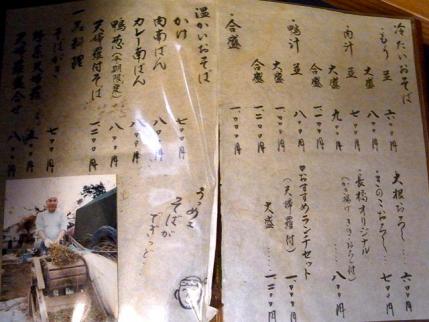 冷たいおそば
・もり 並 六〇〇円
大盛 八〇〇円
・肉汁 並 七〇〇円
大盛 九〇〇円
合盛 一、〇〇〇円
・鴨汁 並 八〇〇円
大盛 一、〇〇〇円
合盛 一、二〇〇円
・合盛
大根おろし… 六〇〇円
・きのこおろし… 七〇〇円
・長橋オリジナル 八〇〇円
・おすすめランチセット 一、〇〇〇円
(天婦羅付)
大盛 一、二〇〇円
温かいおそば
かけ 七〇〇円
肉南ばん 八〇〇円
カレー南ばん 八〇〇円
鴨葱(冬期限定) 八〇〇円
天婦羅付そば 一、二〇〇円
一品料理
そばがき 七〇〇円
野菜天婦羅 五〇〇円
天婦羅盛合せ
うんめぇ
そばが
できっと